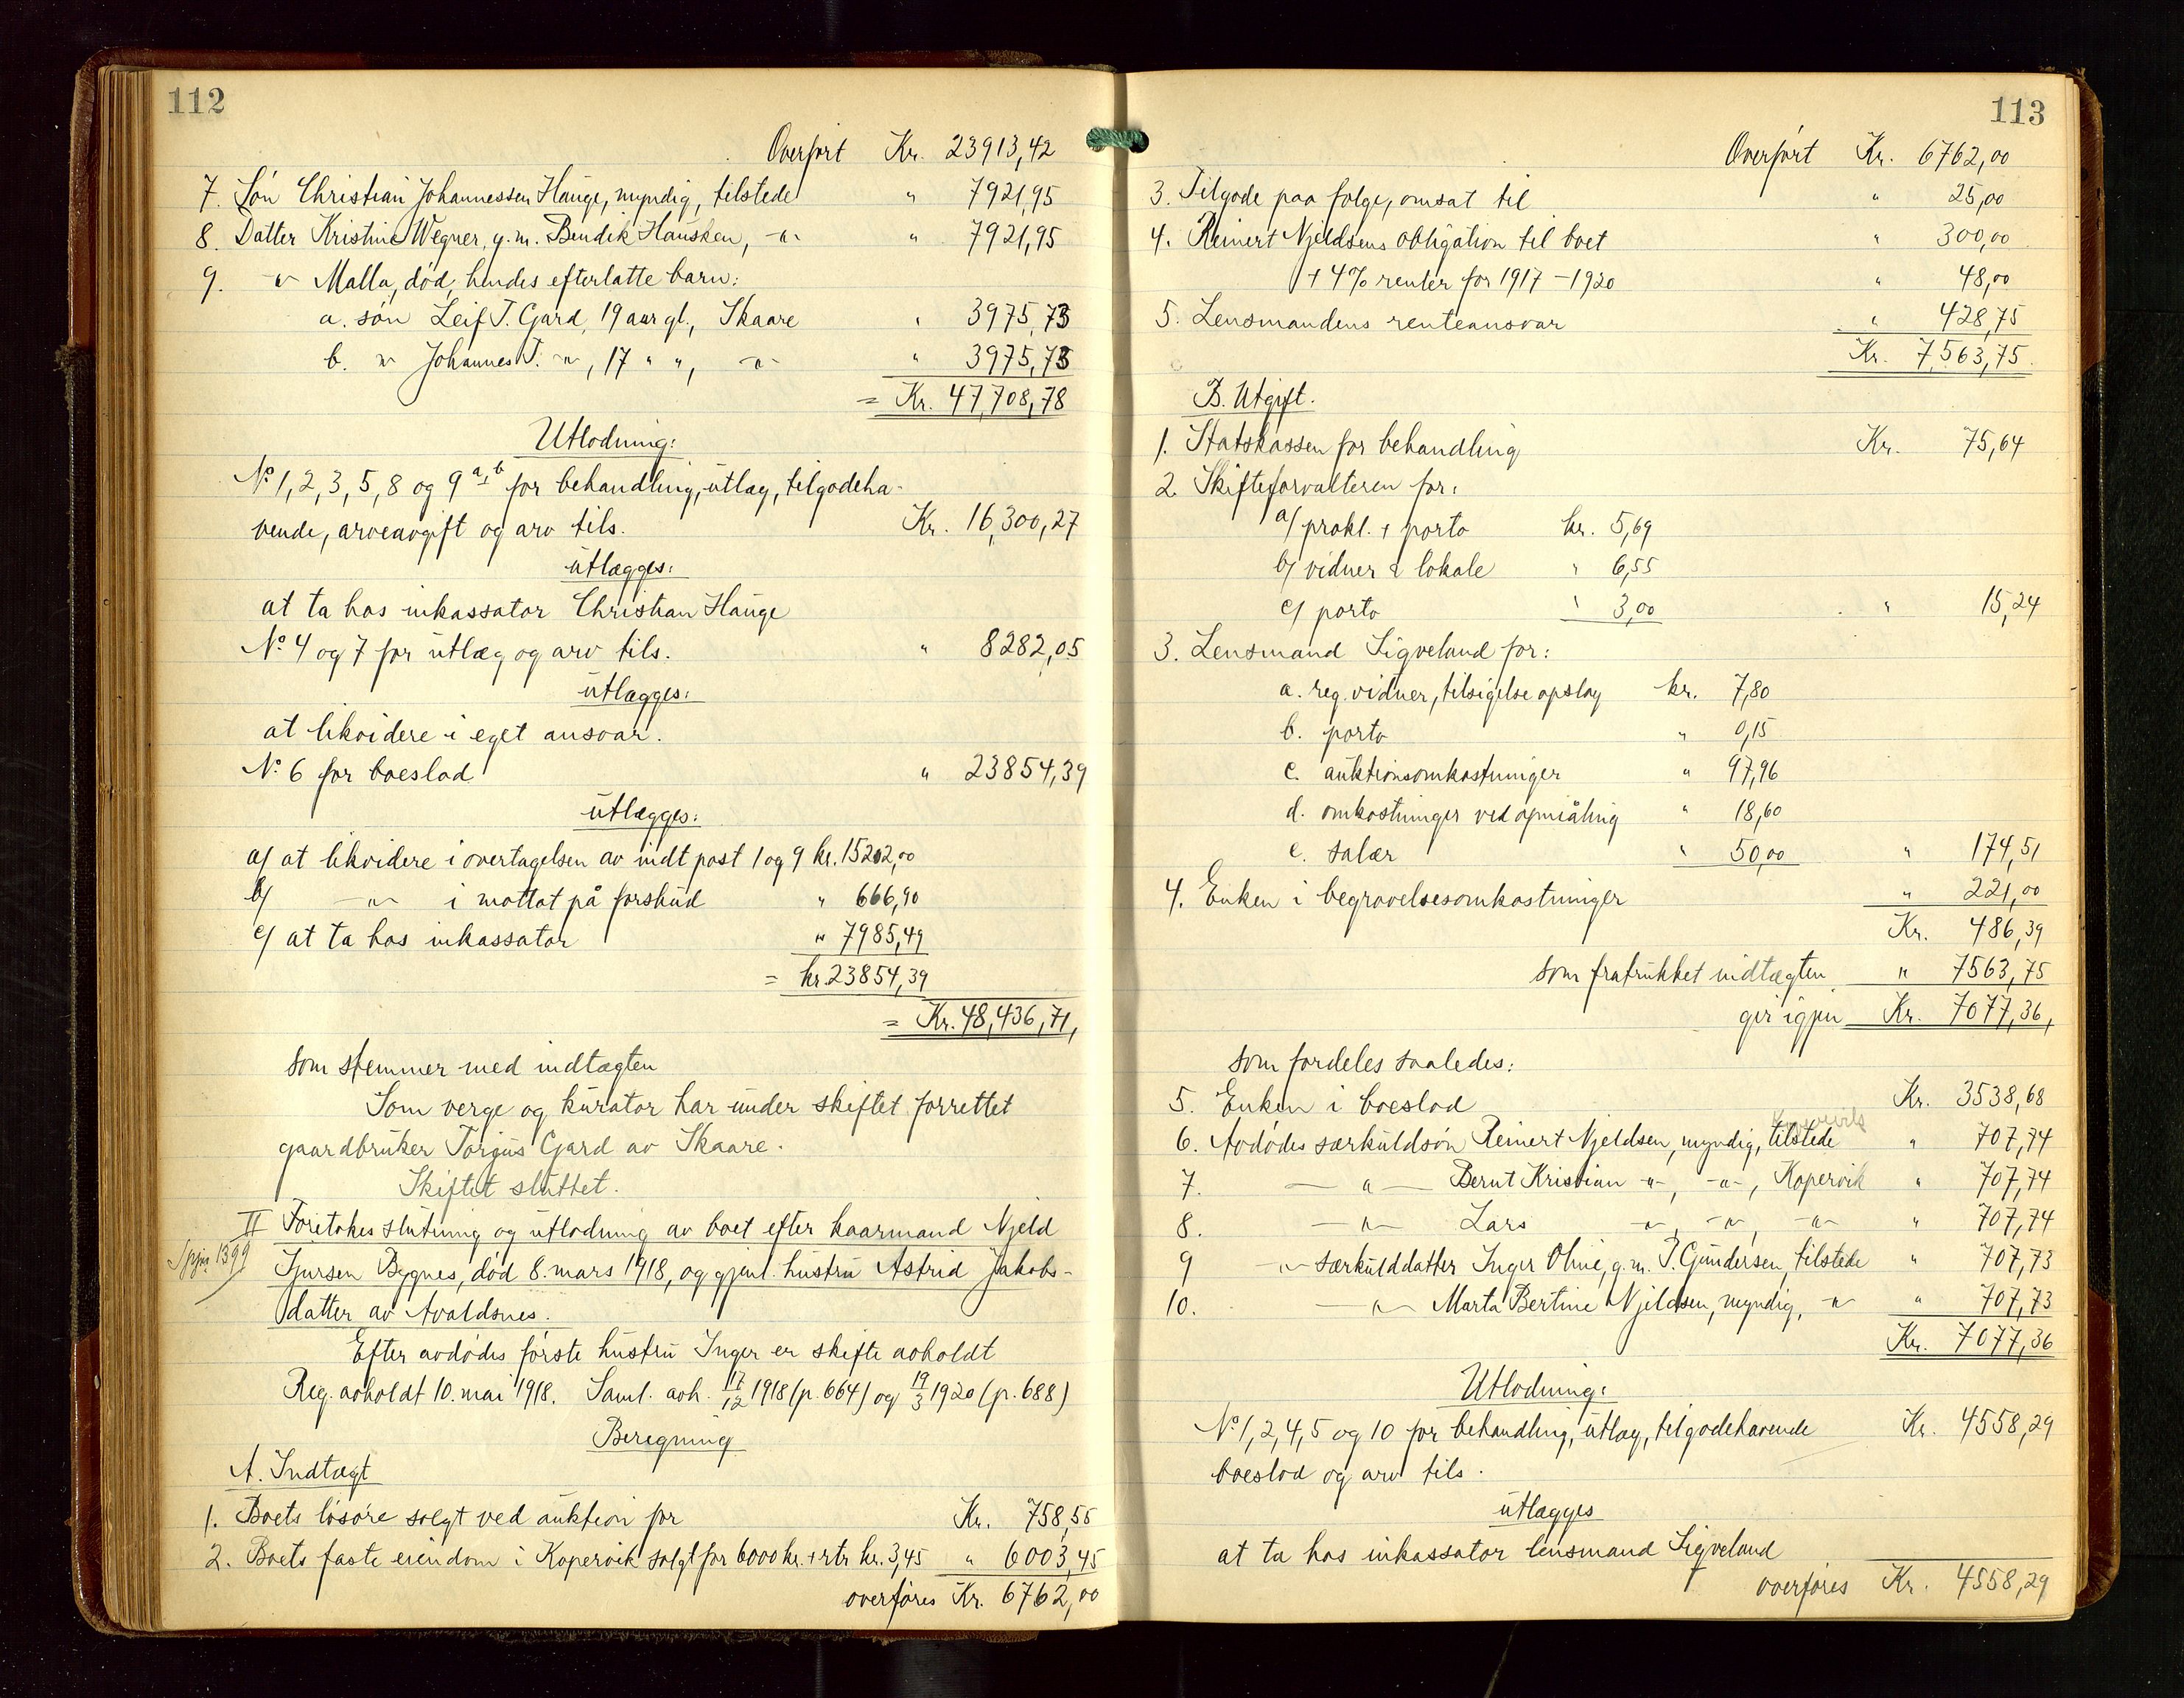 112
Overført Kr. 23913,42
7. Søn Christian Johannessen Hauge, myndig, tilstede " 7921,95
8. Datter Kristine Wegner, g.m. Bendik Hausken, -"- " 7921,95
9. -"- Malla, død, hendes efterlatte barn:
a. søn Leif T. Gard, 19 aar gl., Skaare " 3975,73
b. -"- Johannes T. -"-, 17 " ", -"- " 3975,73
= Kr. 47,708,78
Utlodning:
No 1, 2, 3, 5, 8 og 9 a, b for behandling, utlæg, tilgodeha-
vende, arveavgift og arv tils. Kr. 16,300,27
utlægges:
at ta hos inkassator Christian Hauge
No 4 og 7 for utlæg og arv tils. " 8282,05
utlægges:
at likvidere i eget ansvar.
No 6 for boeslod " 23854,39
utlægges:
a/ at likvidere i overtagelsen av indt post 1 og 9 kr. 15202,00
b/ -"- i mottat på forskud " 666,90
c/ at ta hos inkassator " 7985,49
= kr. 23854,39
= Kr. 48,436,71,
som stemmer med indtægten
Som verge og kurator har under skiftet forrettet
gaardbruker Torgus Gard av Skaare.
Skiftet sluttet.
II Foretokes slutning og utlodning av boet efter kaarmand Njeld
1399
Sjursen Bygnes, død 8. mars 1918, og gjenl. hustru Astrid Jakobs-
datter av Avaldsnes.
Efter avdødes første hustru Inger er skifte avholdt
Reg. avholdt 10. mai 1918. Saml. avh. 17/12 1918 (p. 664) og 19/3 1920 (p. 688)
Beregning
A. Indtægt
1. Boets løsøre solgt ved auktion for Kr. 758,55
2. Boets faste eiendom i Kopervik solgt for 6000 kr. + rtr kr. 3,45 " 6003,45
overføres Kr. 6762,00
113
Overført Kr. 6762,00
3. Tilgode paa følge, omsat til " 25,00
4. Reinert Njeldsens obligation til boet " 300,00
+ 4% renter for 1917 - 1920 " 48,00
5. Lensmandens renteansvar " 428,75
Kr. 7,563,75.
B. Utgift.
1. Statskassen for behandling Kr. 75,64
2. Skifteforvalteren for:
a/ prokl. + porto kr. 5,69
b/ vidner & lokale " 6,55
c/ porto " 3,00 " 15,24
3. Lensmand Sigveland for:
a. reg. vidner, tilsigelse opslag kr. 7,80
b. porto " 0,15
c. auktionsomkostninger " 97,96
d. omkostninger ved opmåling " 18,60
e. salær " 50,00 " 174,51
4. Enken i begravelsesomkostninger " 221,00
Kr. 486,39
som fratrukket indtægten " 7563,75
gir igjen Kr. 7077,36,
som fordeles saaledes:
5. Enken i boeslod Kr. 3538,68
6. Avdødes særkuldsøn Reinert Njeldsen, myndig, tilstede " 707,74
7. -"- Bernt Kristian -"-, -"-, Kopervik " 707,74
8. -"- Lars -"-, -"-, -"- " 707,74
9 -"- særkulddatter Inger Oline, g.m. P. Gundersen, tilstede " 707,73
10. -"- Marta Bertine Njeldsen, myndig, -"- " 707,73
Kr. 7077,36
Utlodning:
No 1, 2, 4, 5 og 10 for behandling, utlæg, tilgodehavende Kr. 4558,29
boeslod og arv tils.
utlægges
at ta hos inkassator lensmand Sigveland
overføres Kr. 4558,29